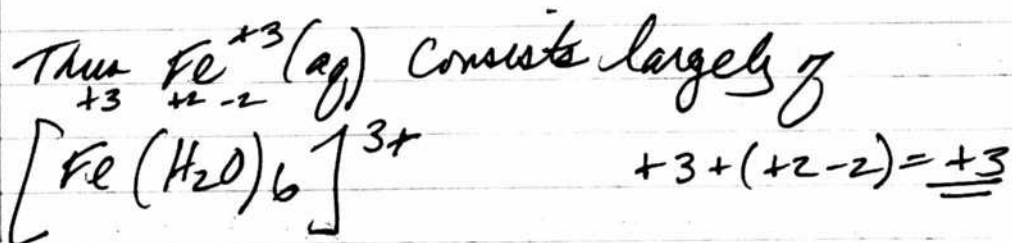 Thus Fe⁺³(aq) consists largely of
+3 +2 -2
[Fe(H₂O)₆]³⁺ +3+(+2-2)=+3